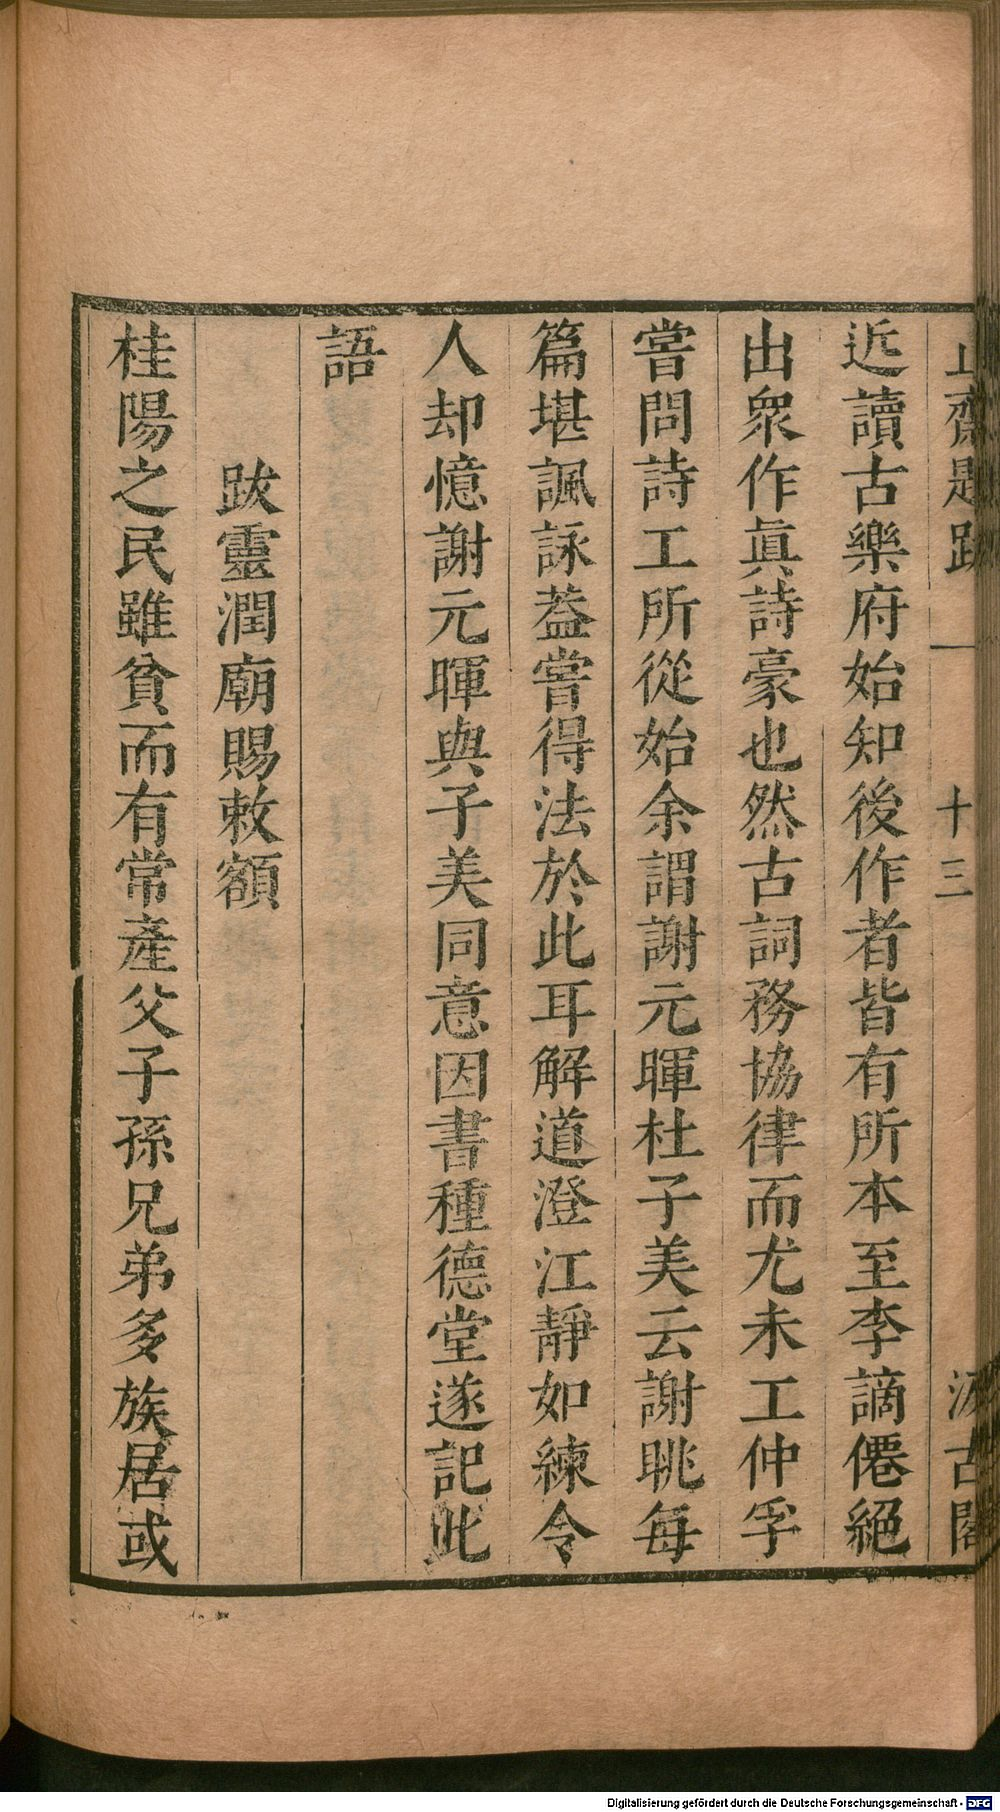 止齋題跋 一 十三 汲古閣
近讀古樂府始知後作者皆有所本至李謫僊絕
出衆作眞詩豪也然古詞務協律而尤未工仲孚
嘗問詩工所從始余謂謝元暉杜子美云謝眺每
篇堪諷詠葢嘗得法於此耳解道澄江靜如練令
人却憶謝元暉與子美同意因書種德堂遂記此
語
跋靈潤廟賜敕額
桂陽之民雖貧而有常產父子孫兄弟多族居或
Digitalisierung gefördert durch die Deutsche Forschungsgemeinschaft - DFG